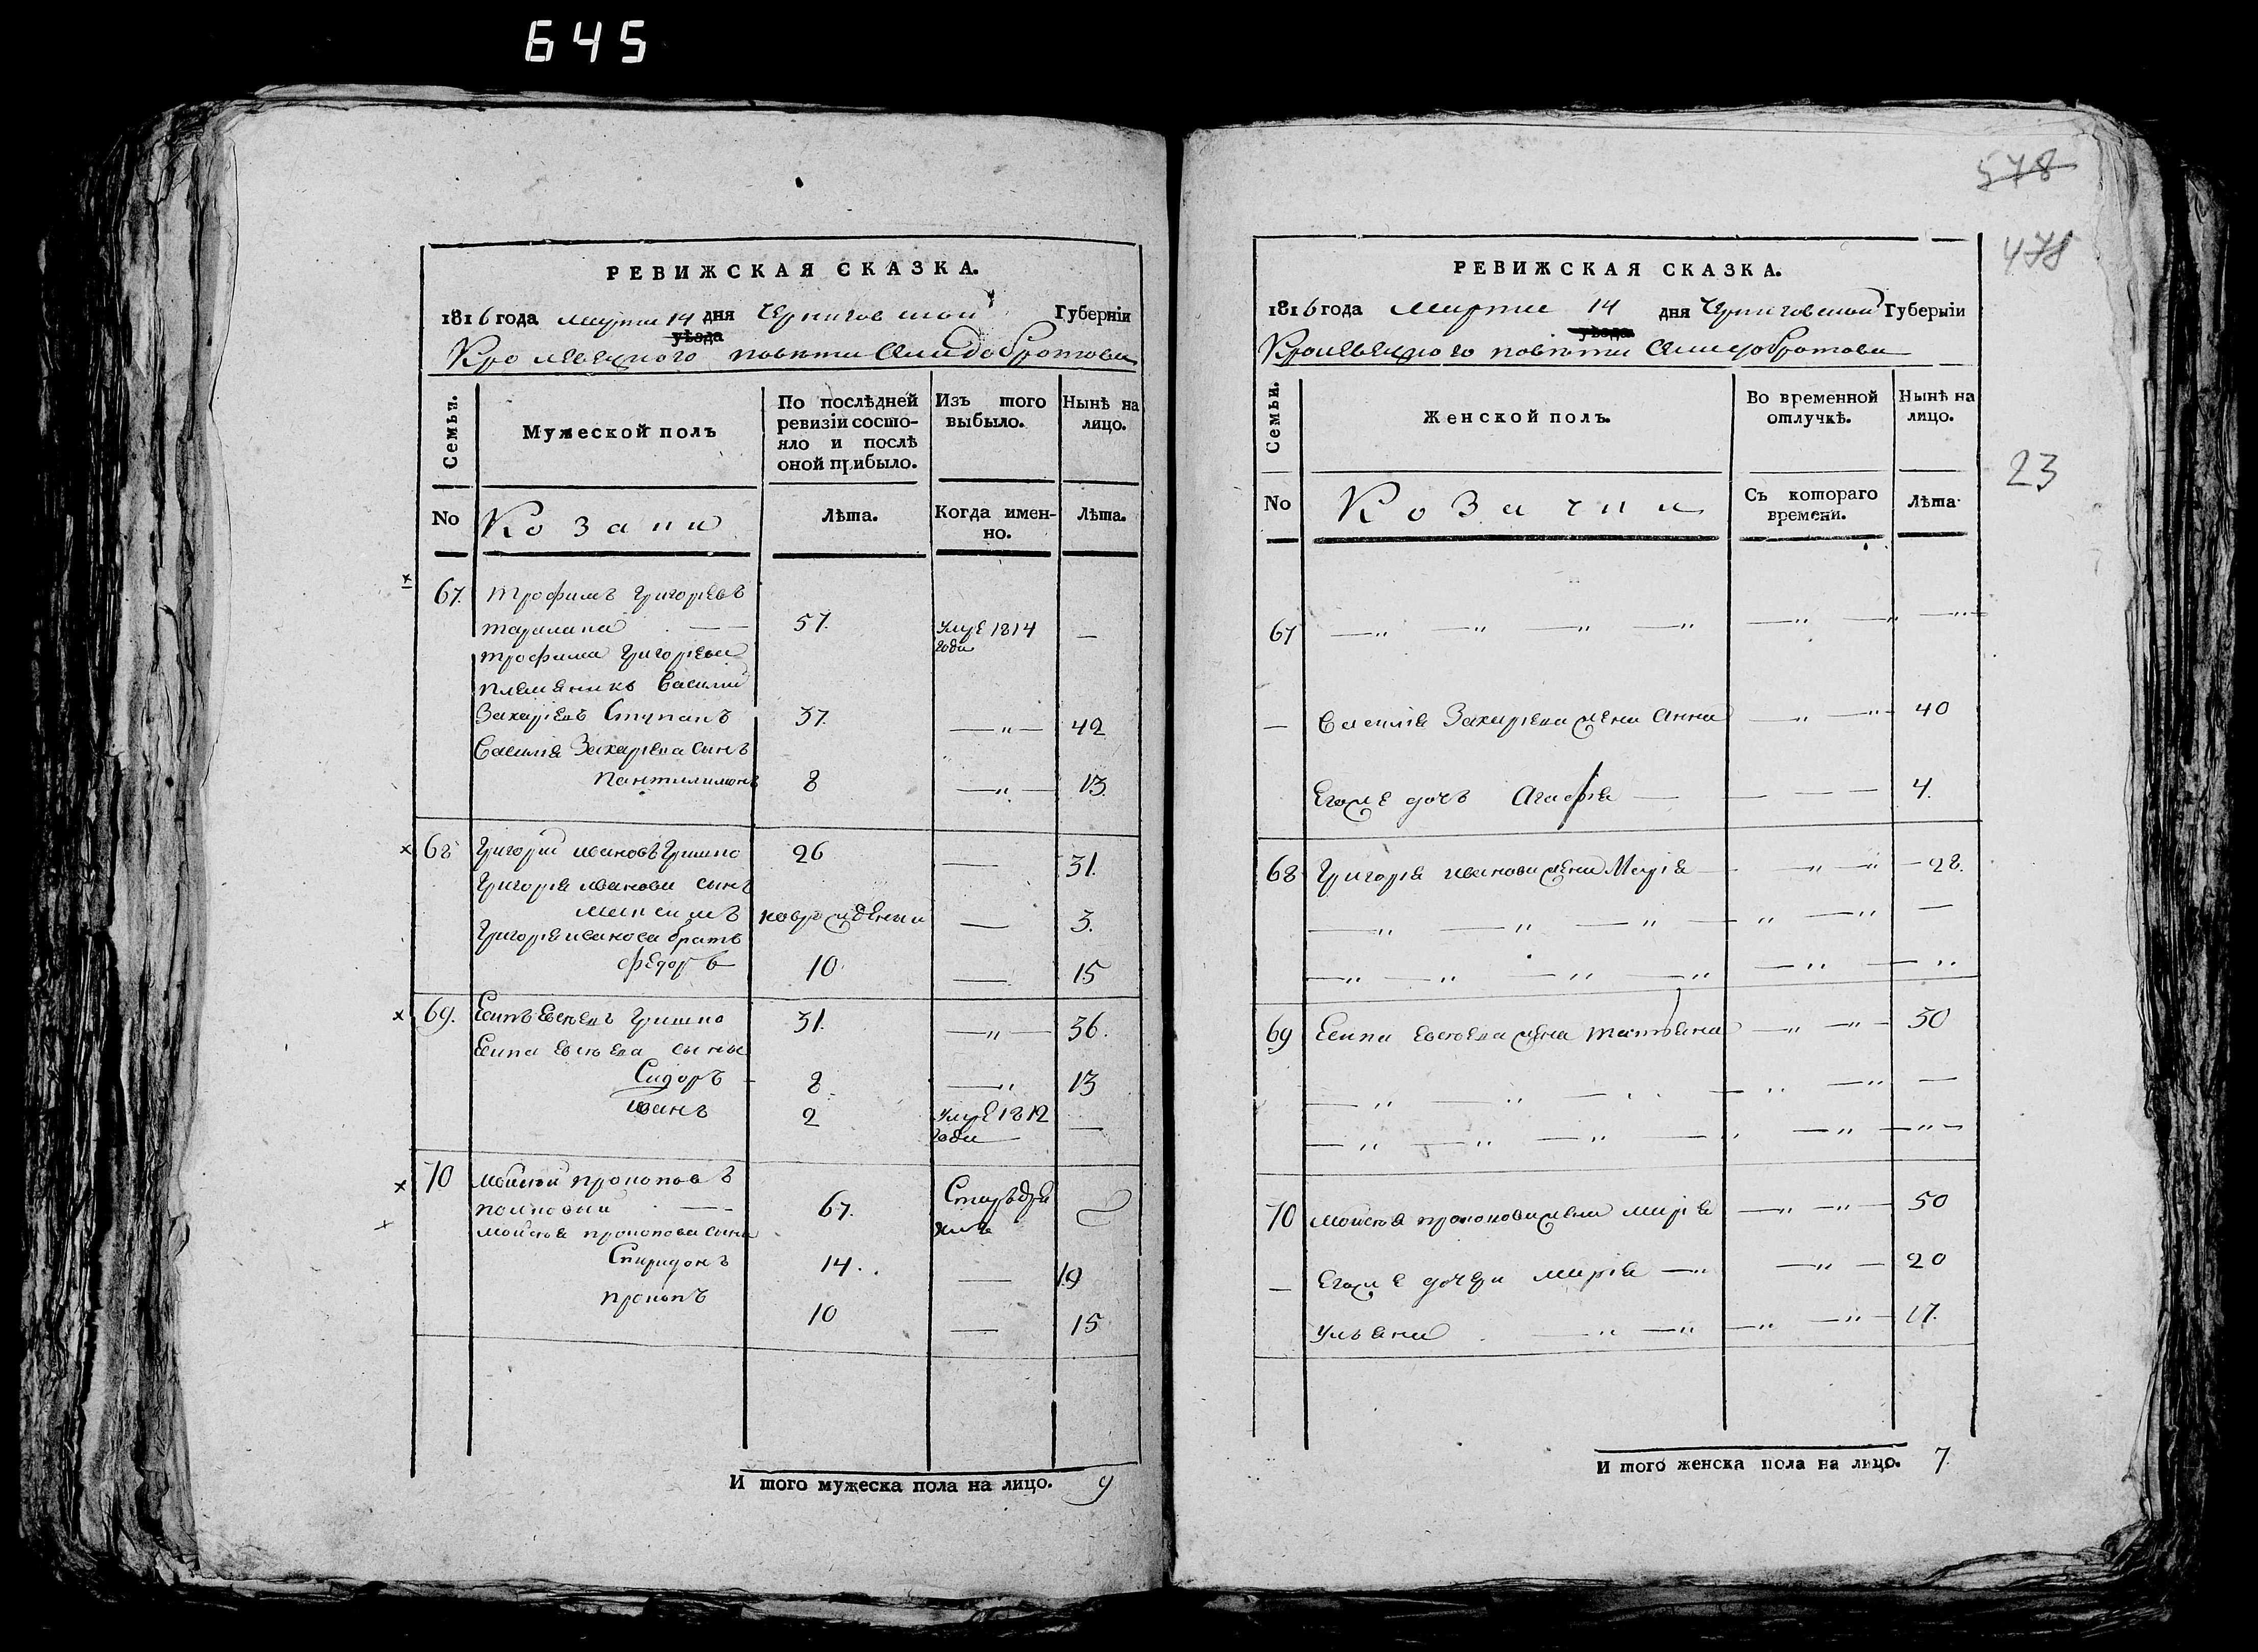 645
РЕВИЖСКАЯ СКАЗКА.
1816 года марта 14 дня Черниговской Губернїи
уѣзда
Кролевецкого повѣта Села добротова
Семьи.
Мужеской полъ
По послѣдней ревизїи состояло и послѣ оной прибыло.
Изъ того выбыло.
Нынѣ на лицо.
No
Козаки
Лѣта.
Когда именно.
Лѣта.
67. трофимъ григорїевъ
57. умре 1814 —
года
трофима григорїева
племеникъ василїй
Захарїевъ 37. —„— 42
василїя Захарїева сынъ
пантилимонъ 8 —„— 13.
68 григорїй ивановъ Гришко 26 — 31.
григорїя иванова сынъ
максимъ новорожденый — 3.
григорїя иванова братъ
федоръ 10 — 15
69. Есипъ Евсѣевъ Гришко 31. —„— 36.
Есипа Евсѣева сыны
Сидоръ 8 —„ 13
иванъ 2 умре 1812 —
года
70 мойсей прокоповъ
67.
мойсея прокопова сыны
Спиридонъ 14. — 19
прокопъ 10 — 15
И того мужеска пола на лицо. 9
578
478
23
РЕВИЖСКАЯ СКАЗКА.
1816 года марта 14 дня Черниговской Губернїи
уѣзда
Кролевецкого повѣта Села добротова
Семьи.
Женской полъ.
Во временной отлучкѣ.
Нынѣ на лицо.
No
Козачки
Съ котораго времени.
Лѣта
67 —„ —„ —„ —„ —„ —„ —„
— василїя Захарїева жена анна —„ —„ 40
Егожъ дочъ агафїя — — — — 4.
68 григорїя иванова жена Марїя — —„ —„ — 28.
69 Есипа Евсѣева жена татїяна —„ —„ — 30
70 мойсея прокопова жена марїя —„ —„ — 50
— Егожъ дочери марїя —„ —„ — 20
ульяна —„ —„ —„ —„ — 17.
И того женска пола на лицо. 7.